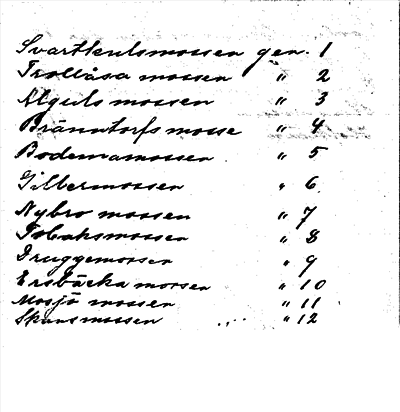 Svartkulsmossen gen. 1
Trollåsa mossen " 2
Älguls mossen " 3
Bränntorfs mosse " 4
Bodemasmossen " 5
Gilbermossen " 6
Nybro mossen " 7
Tobaksmossen " 8
Druggemossen " 9
Ersbäcka mossen " 10
Mosjö mossen " 11
Skansmossen " 12